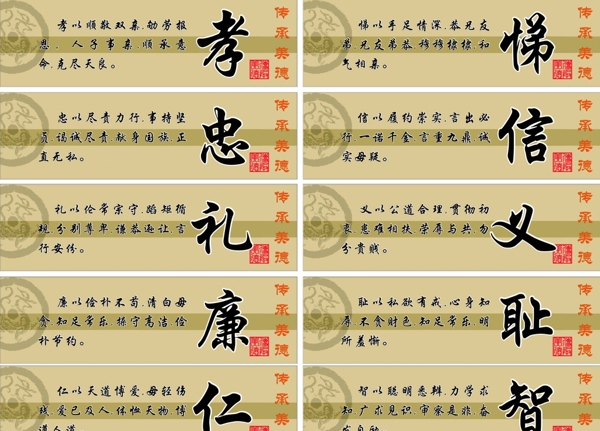 孝以顺敬双亲.劬劳报
恩.人子事亲.顺承意
命.克尽天良。
孝
传承美德
悌以手足情深.恭兄友
弟.兄友弟恭.
气相亲。
悌
传承美德
忠以尽责力行.事持坚
贞.竭诚尽责.献身国族.正
直无私。
忠
传承美德
信以履约崇实.言出必
行.一诺千金.言重九鼎.诚
实毋疑。
信
传承美德
礼以伦常宗守.蹈矩循
规.分别尊卑.谦恭逊让.言
行安份。
礼
传承美德
义以公道合理.贯彻初
衷.患难相扶.荣辱与共.勿
分贵贱。
义
传承美德
廉以俭朴不苟.清白毋
贪.知足常乐.操守高洁.俭
朴节约。
廉
传承美德
耻以私欲有戒.心身知
辱.不贪财色.知足常乐.明
所羞惭。
耻
传承美德
仁以天道博爱.毋轻伤
残.爱己及人.体恤天物.博
道人道
仁
传承美德
智以聪明悉辩.力学求
知.广求见识.审察是非.奋
发自励
智
传承美德